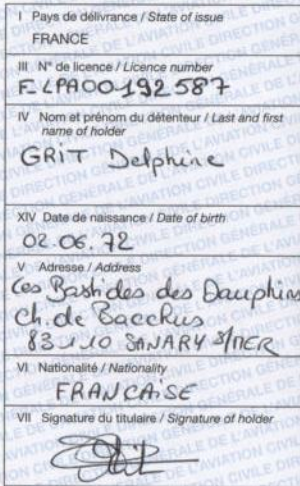 I Pays de délivrance / State of issue
FRANCE
III N° de licence / Licence number
F-LPA00192587
IV Nom et prénom du détenteur / Last and first
name of holder
GRIT Delphine
XIV Date de naissance / Date of birth
02.06.72
V Adresse / Address
Les Bastides des Dauphins
Ch. de Bacchus
83110 SANARY S/MER
VI Nationalité / Nationality
FRANCAISE
VII Signature du titulaire / Signature of holder